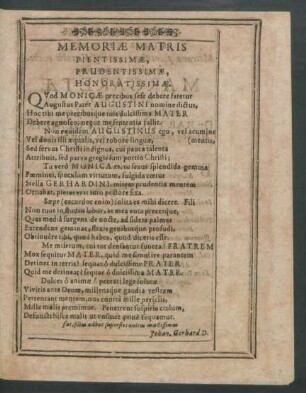 MEMORIÆ MATRIS
PIENTISSIMÆ,
PRUDENTISSIMÆ,
HONORATISSIMÆ.
QUod MONICÆ precibus sese debere fatetur
Augustus Pater AUGUSTINI nomine dictus,
Hoc tibi meq; precibusque tuis dulcissima MATER
Debere agnosco, neque me sententia fallit.
Non equidem AUGUSTINUS ego, vel acumine
Vel donis illi æqualis, vel robore linguæ, (mentis,
Sed servus Christi indignus, cui pauca talenta
Attribuit, sed parva gregis portio Christi;
Tu vero MONICA es, tu sexus splendida gemma
Fœminei, speculum virtutum, fulgida
Stella GERHARDINI
Ornabat, pietas erat
Sæpe (recordor enim) solita es mihi dicere: Fili
Non tuus in studiis labor, at mea vota precesque,
Quas media surgens de nocte, ad sidera palmas
Extendens geminas, flexis genibusque profudi,
Obtinuere tibi, quod habes, quod diceris esse.
Me miserum, cui tot densantur funera! FRATREM
Mox sequitur MATER, quid me similive parantem
Detinet in terris? sequar ô dulcissime FRATER.
Quid me detineat? sequar ô dulcissima MATER.
Dulces ô animæ
Vivitis ante Deum, millenaque gaudia vestram
Pertentant mentem, nos contra mille pericla,
Mille malis premimur. Penetrent suspiria cœlum,
Defunctis hisce malis ut vos quoque sequamur.
superstes matri mœstissimus
Johan. Gerhard D.